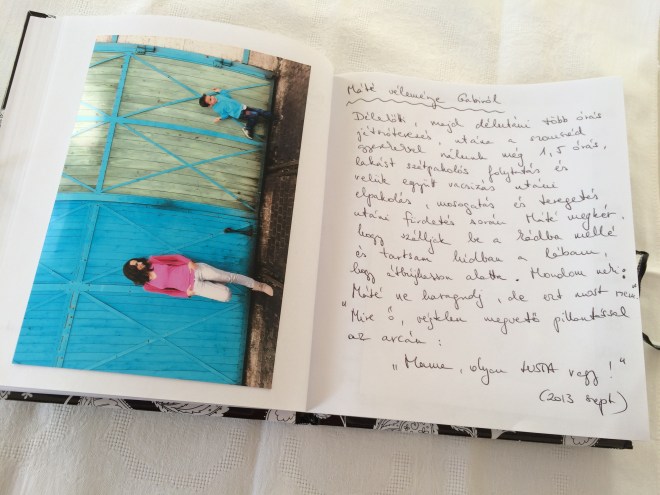 Máté véleménye Gabiról
Délelőtti, majd délutáni több órás
játszóterezés, utána a szomszéd
gyerekekkel nálunk még 1,5 órás,
lakást szétpakolós folytatás és
velük együtt vacsizás utáni
elpakolás, mosogatás és teregetés
utáni fürdetés során Máté megkér,
hogy szálljak be a kádba mellé
és tartsam hídban a lábam,
hogy átbújhasson alatta. Mondom neki:
"Máté ne haragudj, de ezt most nem."
Mire ő, végtelen megvető pillantással
az arcán:
„Mama, olyan LUSTA vagy!"
(2013 szept)